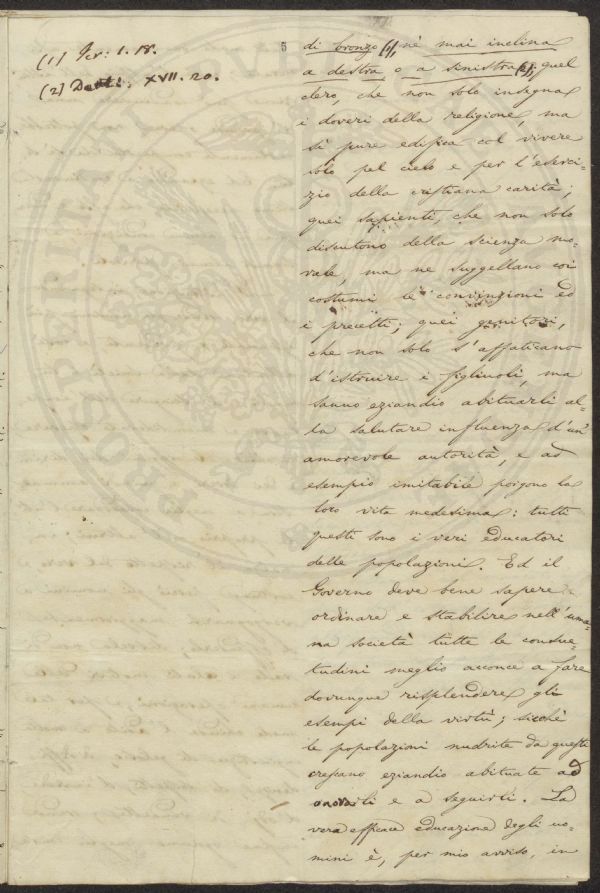 (1) Ger: 1. 18.
(2) Deut: XVII. 20.
di bronzo (1), nè mai inclina
a destra o a sinistra (2); quel
clero, che non solo insegna
i doveri della religione, ma
sì pure edifica col vivere
solo pel cielo e per l'eserci-
zio della cristiana carità;
quei sapienti, che non solo
discutono della scienza mo-
rale, ma ne suggellano coi
costumi le convinzioni ed
i precetti; quei genitori,
che non solo s'affaticano
d'istruire i figliuoli, ma
sanno eziandio abituarli al-
la salutare influenza d'un'
amorevole autorità, e ad
esempio imitabile porgono la
loro vita medesima: tutti
questi sono i veri educatori
delle popolazioni. Ed il
Governo deve bene sapere
ordinare e stabilire nell'uma-
na società tutte le consue-
tudini meglio acconce a fare
dovunque risplendere gli
esempi della virtù; sicchè
le popolazioni nudrite da questi
crescano eziandio abituate ad
onorarli e a seguirli. La
vera efficace educazione degli uo-
mini è, per mio avviso, in
PUBL
PROSPERITATI